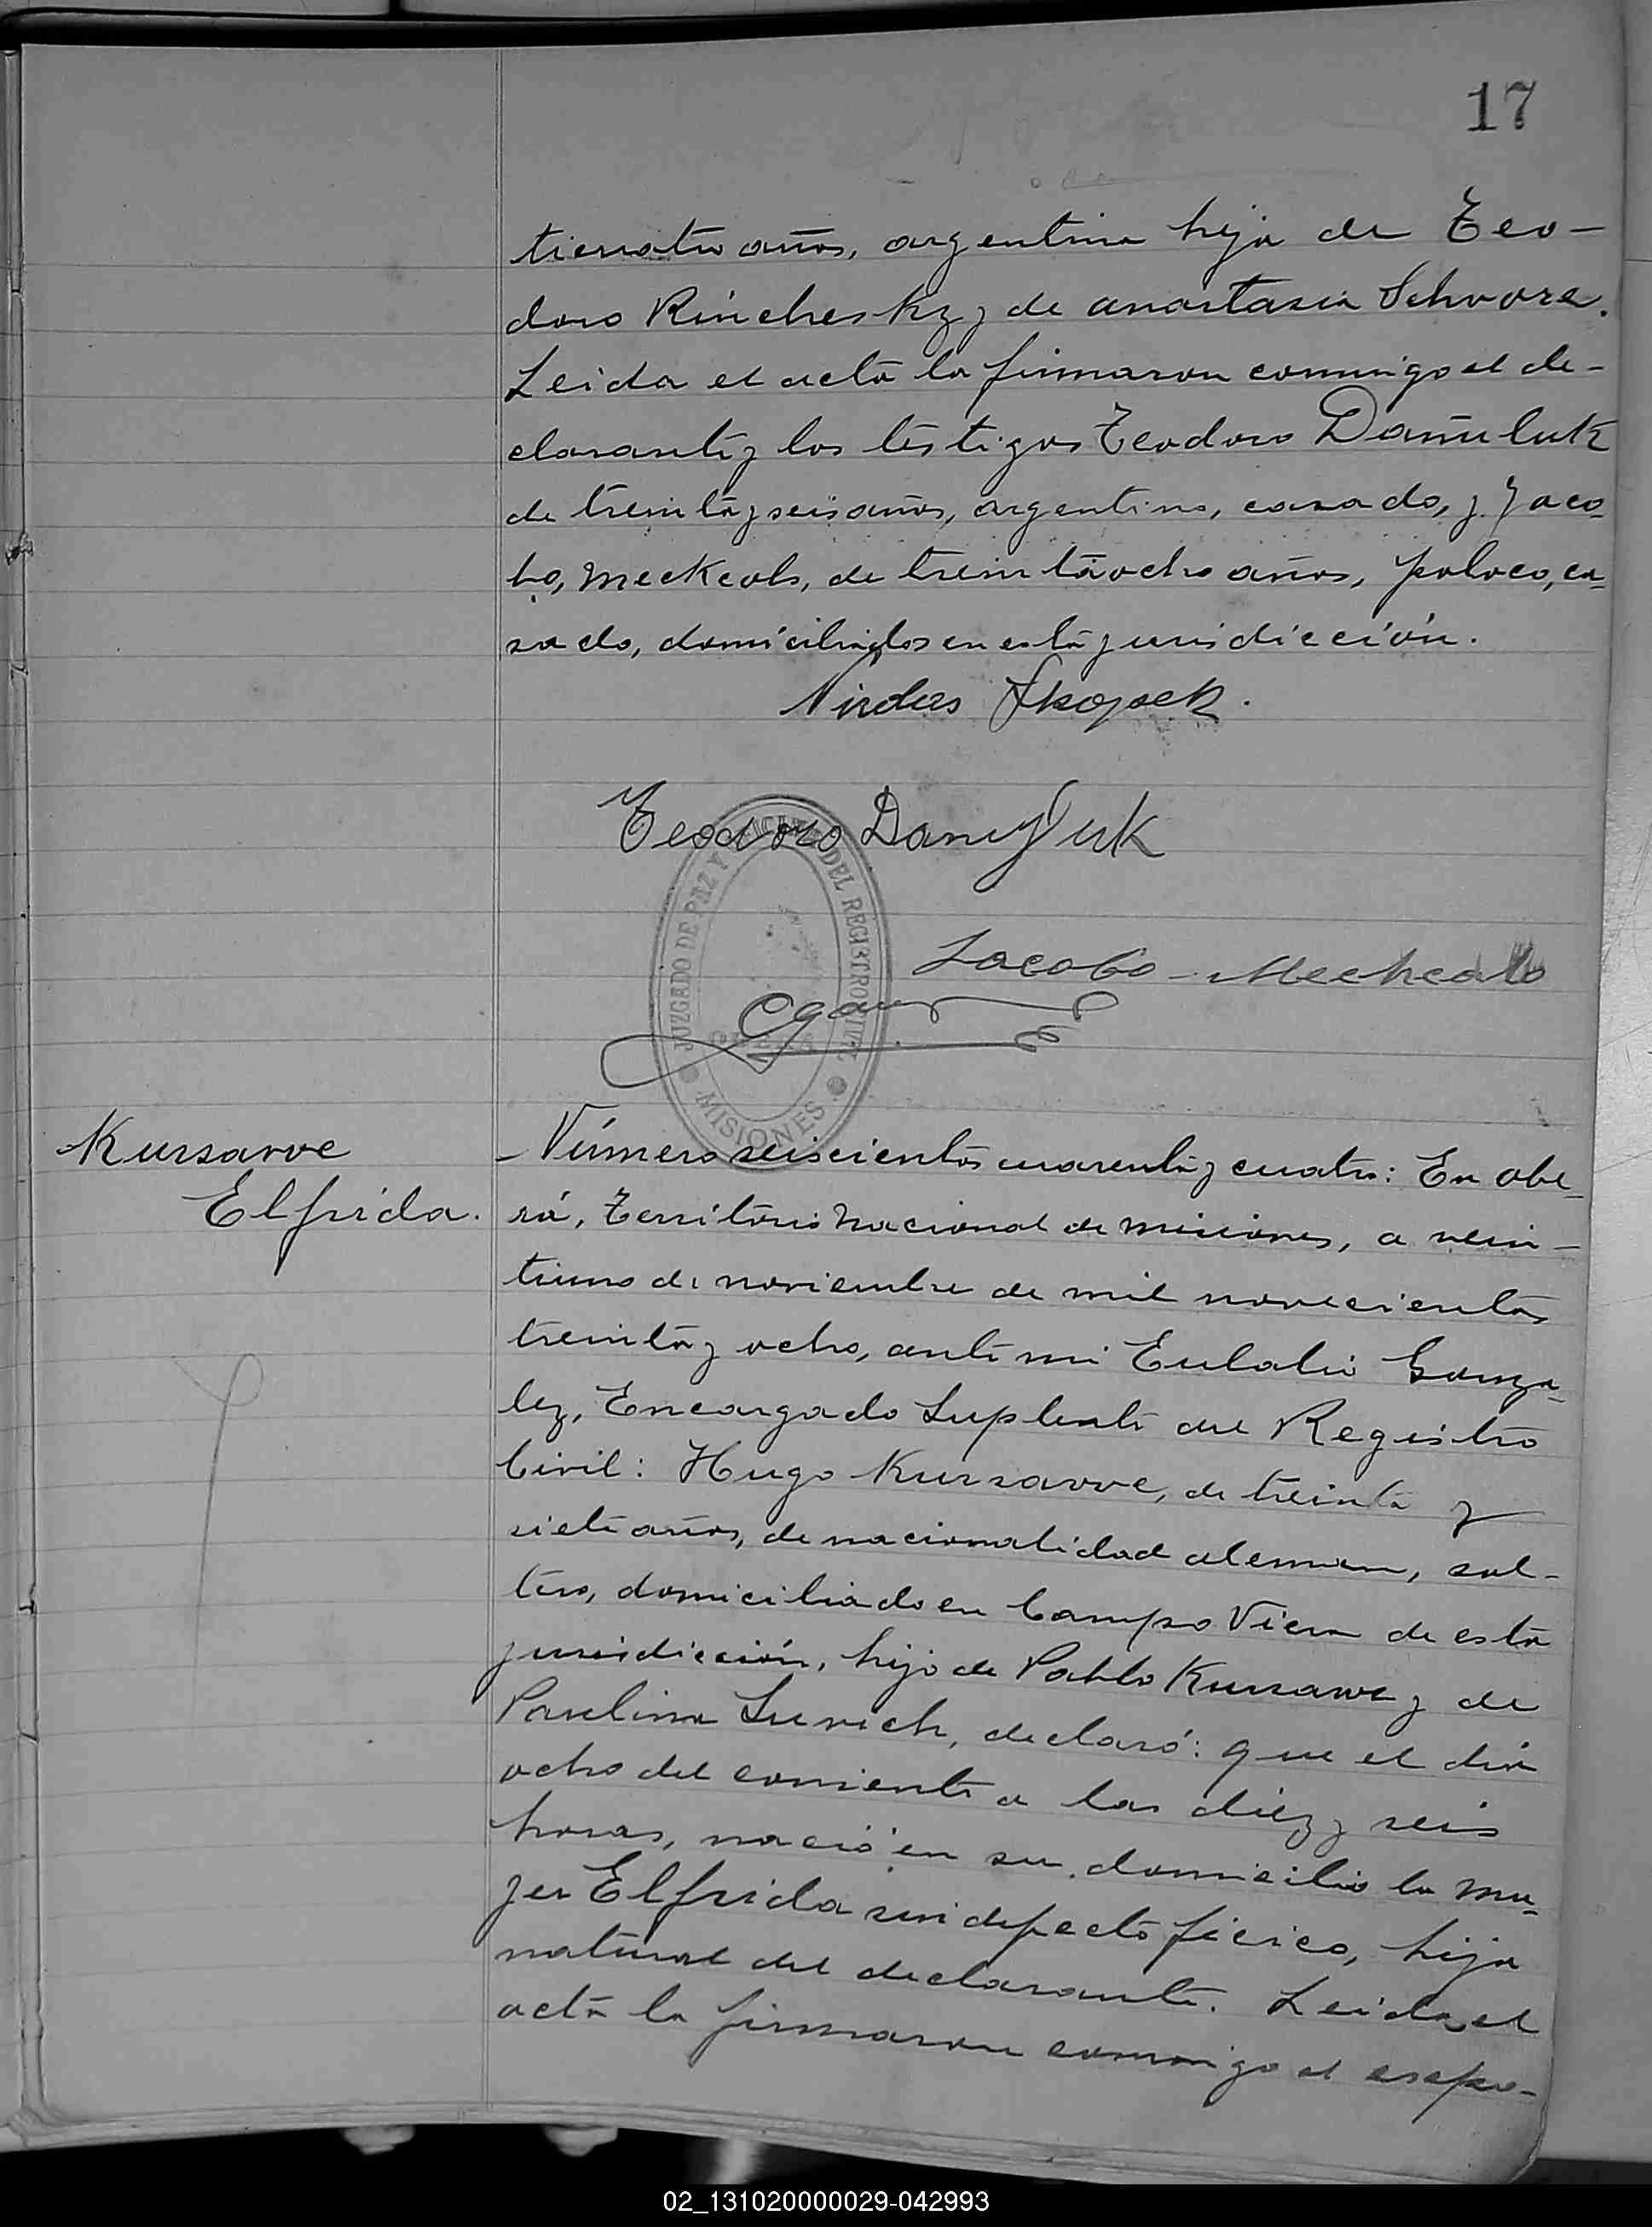 17
ticuatro años, argentina hija de Teo-
doro Rincheskz y de anastasia Schvore.
Leida el acta la firmaron conmigo el de-
clarante y los testigos Teodoro Dañuluk
de treinta y seis años, argentino, casado, y Jaco-
bo, Meckeols, de treintaocho años, polaco, ca-
sado, domiciliados en esta jurisdicción.
Nicolas Skopek.
Teodoro Danyluk
JUZGADO DE PAZ Y OFICINA DEL REGISTRO CIVIL
MISIONES
Jacobo Mecheals
Kursarve
Elfrida.
Número seiscientos cuarenta y cuatro: En Obe-
rá, Territorio Nacional de Misiones, a vein-
tiuno de noviembre de mil novecientos
treinta y ocho, ante mi Eulalio Gonza-
lez, Encargado Suplente del Registro
Civil: Hugo Kursarve, de treinta y
siete años, de nacionalidad aleman, sol-
tero, domiciliado en Campo Viera de esta
jurisdicción, hijo de Pablo Kursarve y de
Paulina Lurich, declaró: que el dia
ocho del corriente a las diez y seis
horas, nació en su domicilio la mu-
jer Elfrida sin defecto ficico, hija
natural del declarante. Leida el
acta la firmaron conmigo el expo-
02_131020000029-042993